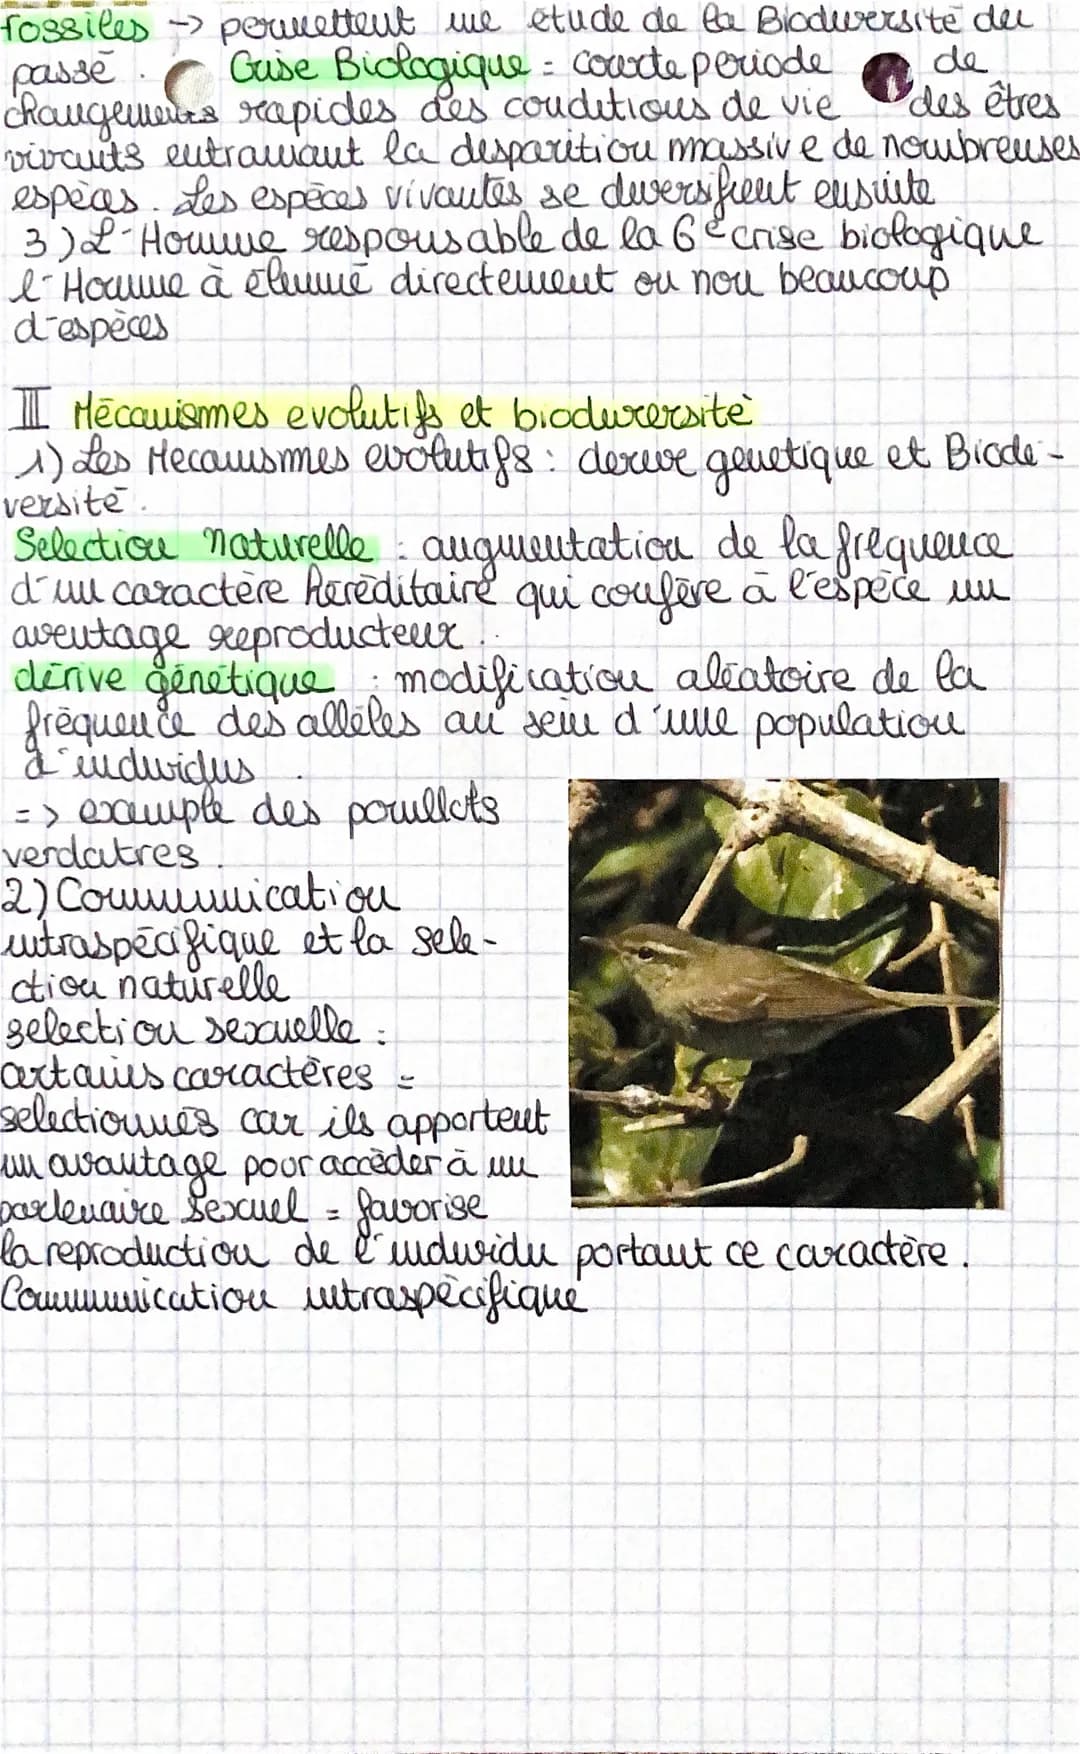 fossiles -> permettent une étude de la Biodiversité du
passé. Crise Biologique = courte periode de
changements rapides des conditions de vie des êtres
vivants entrainant la disparition massive de nombreuses
espèces. Les espèces vivantes se diversifient ensuite
3) L'Homme responsable de la 6e crise biologique
l'Homme à éliminé directement ou non beaucoup
d'espèces
III Mécanismes evolutifs et biodiversité
1) Les Mecanismes evolutifs : derive genetique et Biode-
versité.
Selection naturelle : augmentation de la fréquence
d'un caractère héréditaire qui confère à l'espèce un
aventage reproducteur.
dérive génétique : modification aléatoire de la
fréquence des allèles au sein d'une population
d'individus.
=> exemple des pouillots
verdatres.
2) Communication
intraspécifique et la sele-
ction naturelle
selection sexuelle :
certains caractères =
selectionnés car ils apportent
un avantage pour accèder à un
partenaire sexuel = favorise
la reproduction de l'individu portant ce caractère.
Communication intraspécifique